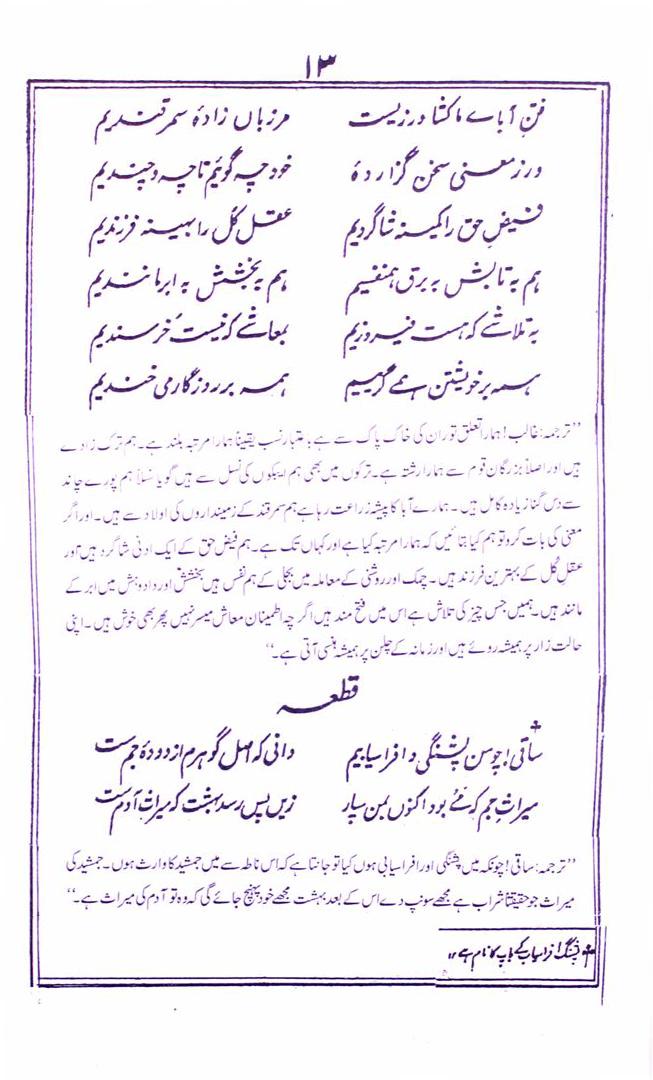 ۱۳
فنِ آبائے ما کشاورزیست مرزباں زادۂ سمرقندیم
ور ز معنی سخن گزاردۂ خود چہ گوئیم تا چہ و چندیم
فیضِ حق را کمینہ شاگردیم عقلِ کُل را بہینہ فرزندیم
ہم بہ تابش بہ برق ہمنفسیم ہم بہ بخشش بہ ابر مانندیم
بہ تلاشے کہ ہست فیروزیم بمعاشے کہ نیست خُرسندیم
ہمہ بر خویشتن ہمے گرییم ہمہ بر روزگار می خندیم
”ترجمہ: غالب! ہمارا تعلق توران کی خاک پاک سے ہے باعتبار نسب یقیناً ہمارا مرتبہ بلند ہے۔ ہم ترک زادے
ہیں اور اصلاً بزرگانِ قوم سے ہمارا رشتہ ہے۔ ترکوں میں بھی ہم ایبکوں کی نسل سے ہیں گویا نسلاً ہم پورے چاند
سے دس گنا زیادہ کامل ہیں۔ ہمارے آبا کا پیشہ زراعت رہا ہے ہم سمرقند کے زمینداروں کی اولاد سے ہیں۔ اور اگر
معنی کی بات کرو تو ہم کیا بتائیں کہ ہمارا مرتبہ کیا ہے اور کہاں تک ہے۔ ہم فیض حق کے ایک ادنیٰ شاگرد ہیں اور
عقلِ کُل کے بہترین فرزند ہیں۔ چمک اور روشنی کے معاملہ میں بجلی کے ہم نفس ہیں بخشش اور داد و دہش میں ابر کے
مانند ہیں۔ ہمیں جس چیز کی تلاش ہے اس میں فتح مند ہیں اگر چہ اطمینان معاش میسر نہیں پھر بھی خوش ہیں۔ اپنی
حالت زار پر ہمیشہ روئے ہیں اور زمانہ کے چلن پر ہمیشہ ہنسی آتی ہے۔“
قطعہ
ساقی! چو من پشنگی و افراسیابیم ‡ دانی کہ اصل گوہرم از دودۂ جم ست
میراثِ جم کہ مئے بود اکنوں بمن سپار زیں پس رسد بہشت کہ میراثِ آدم ست
”ترجمہ: ساقی! چونکہ میں پشنگی اور افراسیابی ہوں کیا تو جانتا ہے کہ اس ناطہ سے میں جمشید کا وارث ہوں۔ جمشید کی
میراث جو حقیقتاً شراب ہے مجھے سونپ دے اس کے بعد بہشت مجھے خود پہنچ جائے گی کہ وہ تو آدم کی میراث ہے۔“
‡ پشنگ افراسیاب کے باپ کا نام ہے ۱۲